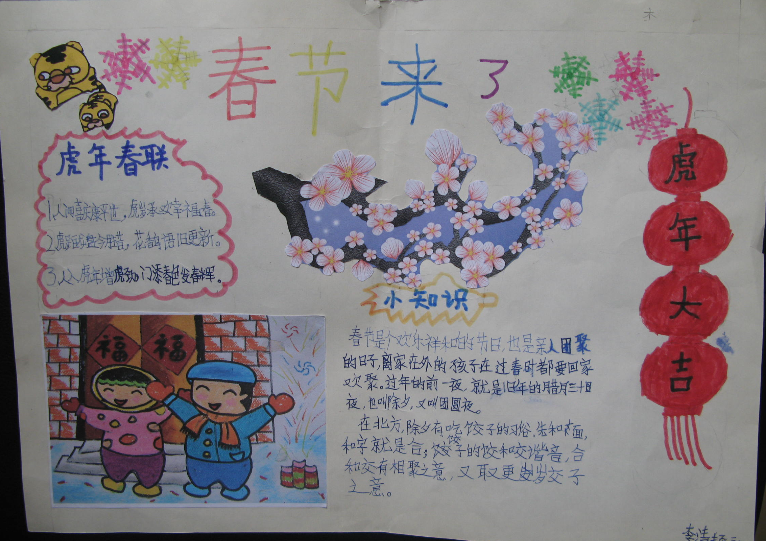 春节来了
虎年春联
1.人间喜庆康平世，虎岁欢幸福春。
2. 花鸟语旧更新。
3.人入虎年门添春色发春辉。
福福
虎年大吉
小知识
春节是个欢乐祥和的节日，也是亲人团聚
的日子，离家在外的孩子在过春节时都要回家
欢聚。过年的前一夜，就是旧年的腊月三十日
夜，也叫除夕，又叫团圆夜。
在北方，除夕有吃饺子的习俗，先和面，
和字就是合；饺子的饺和交谐音，合
和交有相聚之意，又取更岁交子
之意。